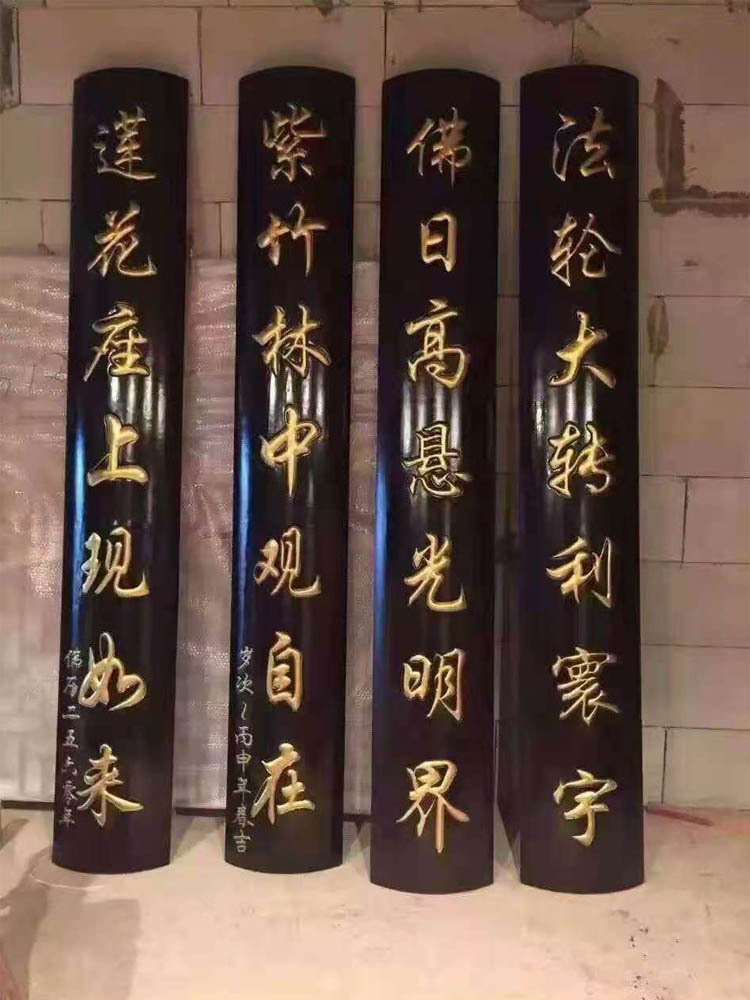 法轮大转利寰宇
佛日高悬光明界
紫竹林中观自在
岁次丙申年春吉
莲花座上现如来
佛历二五六零年